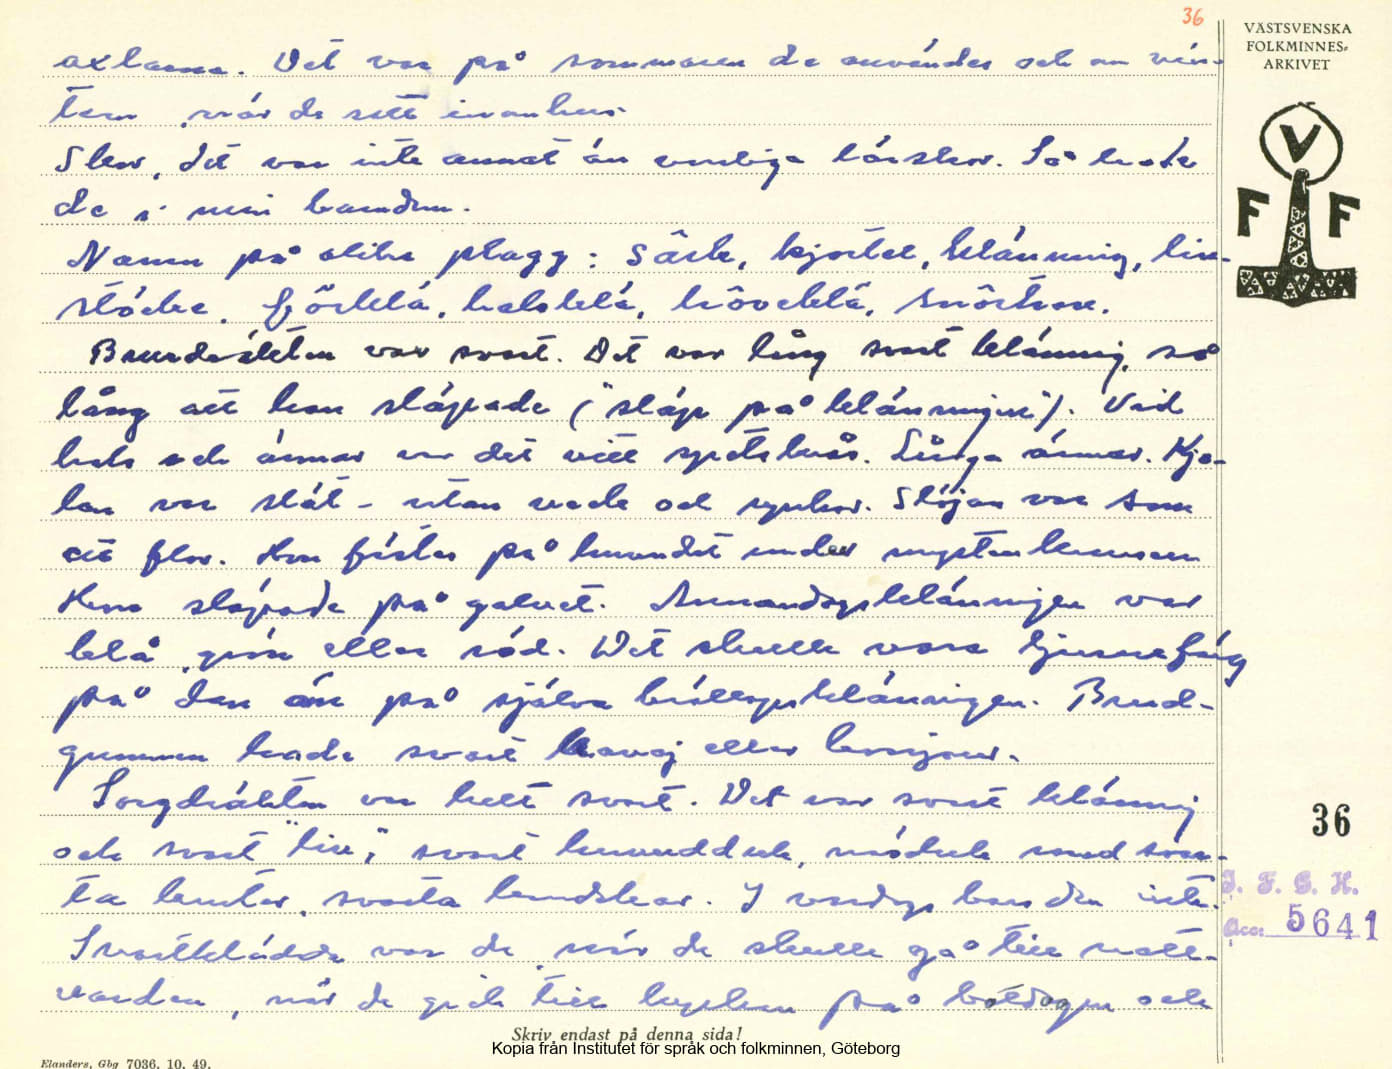 36
VÄSTSVENSKA
FOLKMINNES-
ARKIVET
V
F F
axlarna. Det var på sommaren de användes och om vin-
tern, när de satt inomhus.
Skor, det var inte annat än vanliga lärskor. Så hade
de i min barndom.
Namn på olika plagg: Särk, kjortel, klänning, liv-
stöcke, förklä, halsklä, hôveklä, snörhose.
Bruddräkten var svart. Det var lång svart klänning, så
lång att hon släpade ("släp på klänningen"). Vid
hals och ärmar var det vitt spetskrås. Långa ärmar. Kjo-
len var slät - utan vada och rynkor. Slöjan var som
ett flor. Hon fästes på huvudet under myrtenkronan
Hon släpade på golvet. Annandagsklänningen var
blå, grön eller röd. Det skulle vara ljusare färg
på den än på själva bröllopsklänningen. Brud-
gummen hade svart kavaj eller bonjour.
Sorgdräkten var helt svart. Det var svart klänning
och svart "liv", svart huvudduk, näsduk med svar-
ta kanter, svarta handskar. I vardags bars den inte.
Svartklädda var de, när de skulle gå till natt-
varden, när de gick till kyrkan på böldagen och
36
I. F. G. H.
Acc: 5641
Skriv endast på denna sida!
Kopia från Institutet för språk och folkminnen, Göteborg
Elanders, Gbg 7036. 10. 49.